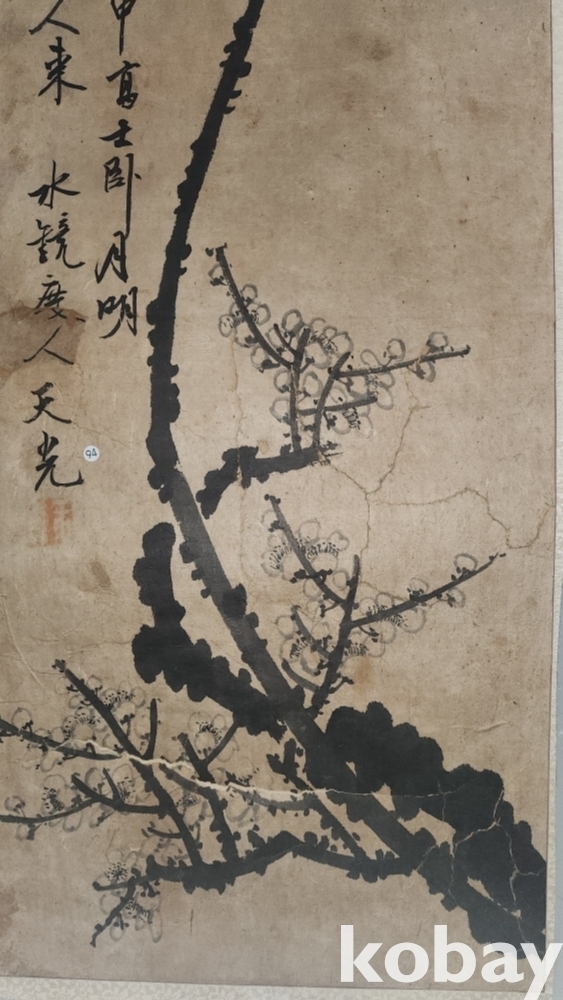 中高士臥月明
人來 水鏡度人天光
kobay